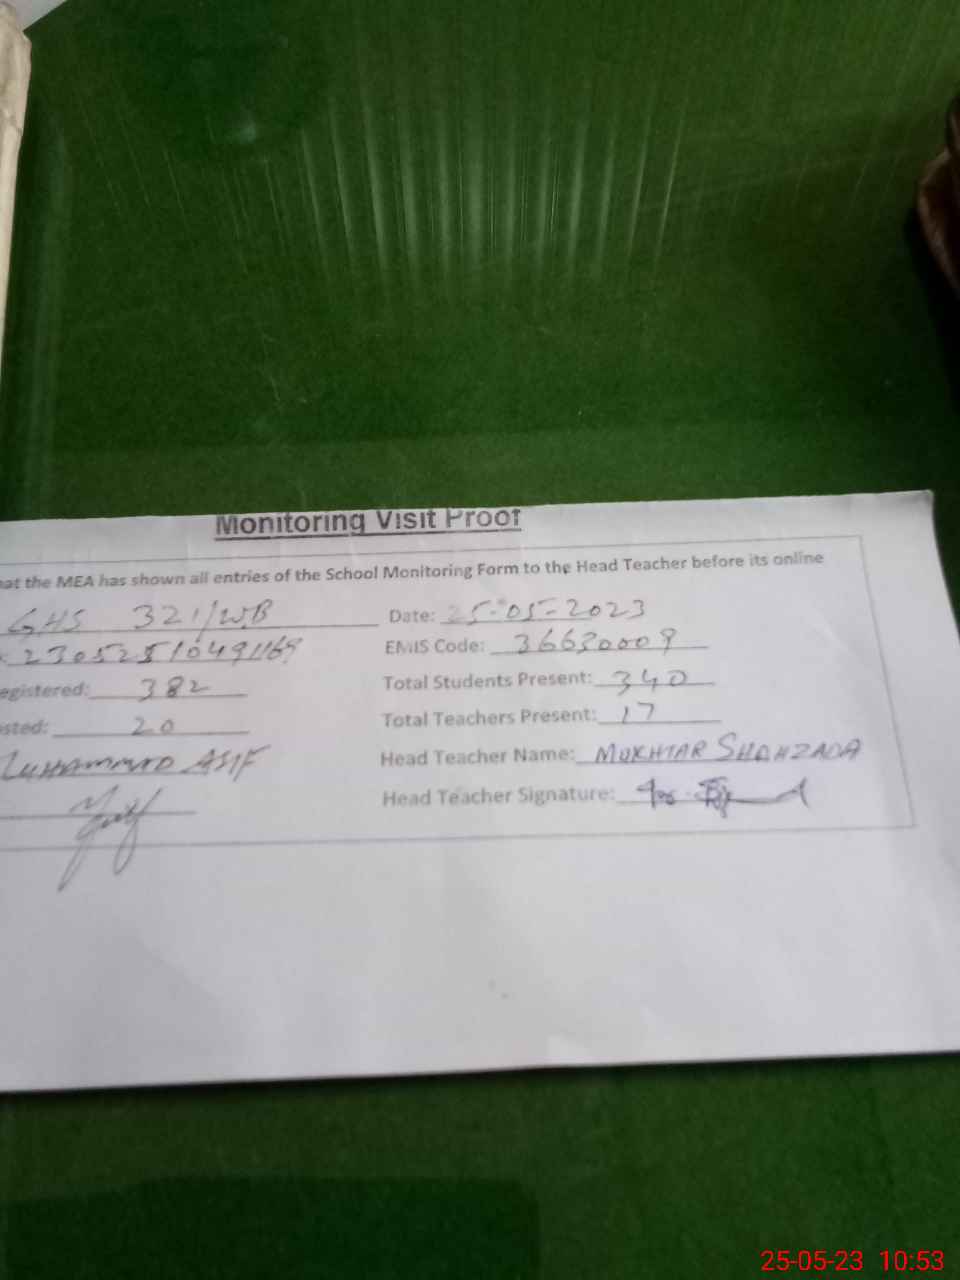 Monitoring Visit Proof
hat the MEA has shown all entries of the School Monitoring Form to the Head Teacher before its online
GHS 321/WB Date: 25-05-2023
: 23052510491169 EMIS Code: 36630009
egistered: 382 Total Students Present: 340
sted: 20 Total Teachers Present: 17
MUHAMMAD ASIF Head Teacher Name: MUKHTAR SHAHZADA
Head Teacher Signature:
25-05-23 10:53